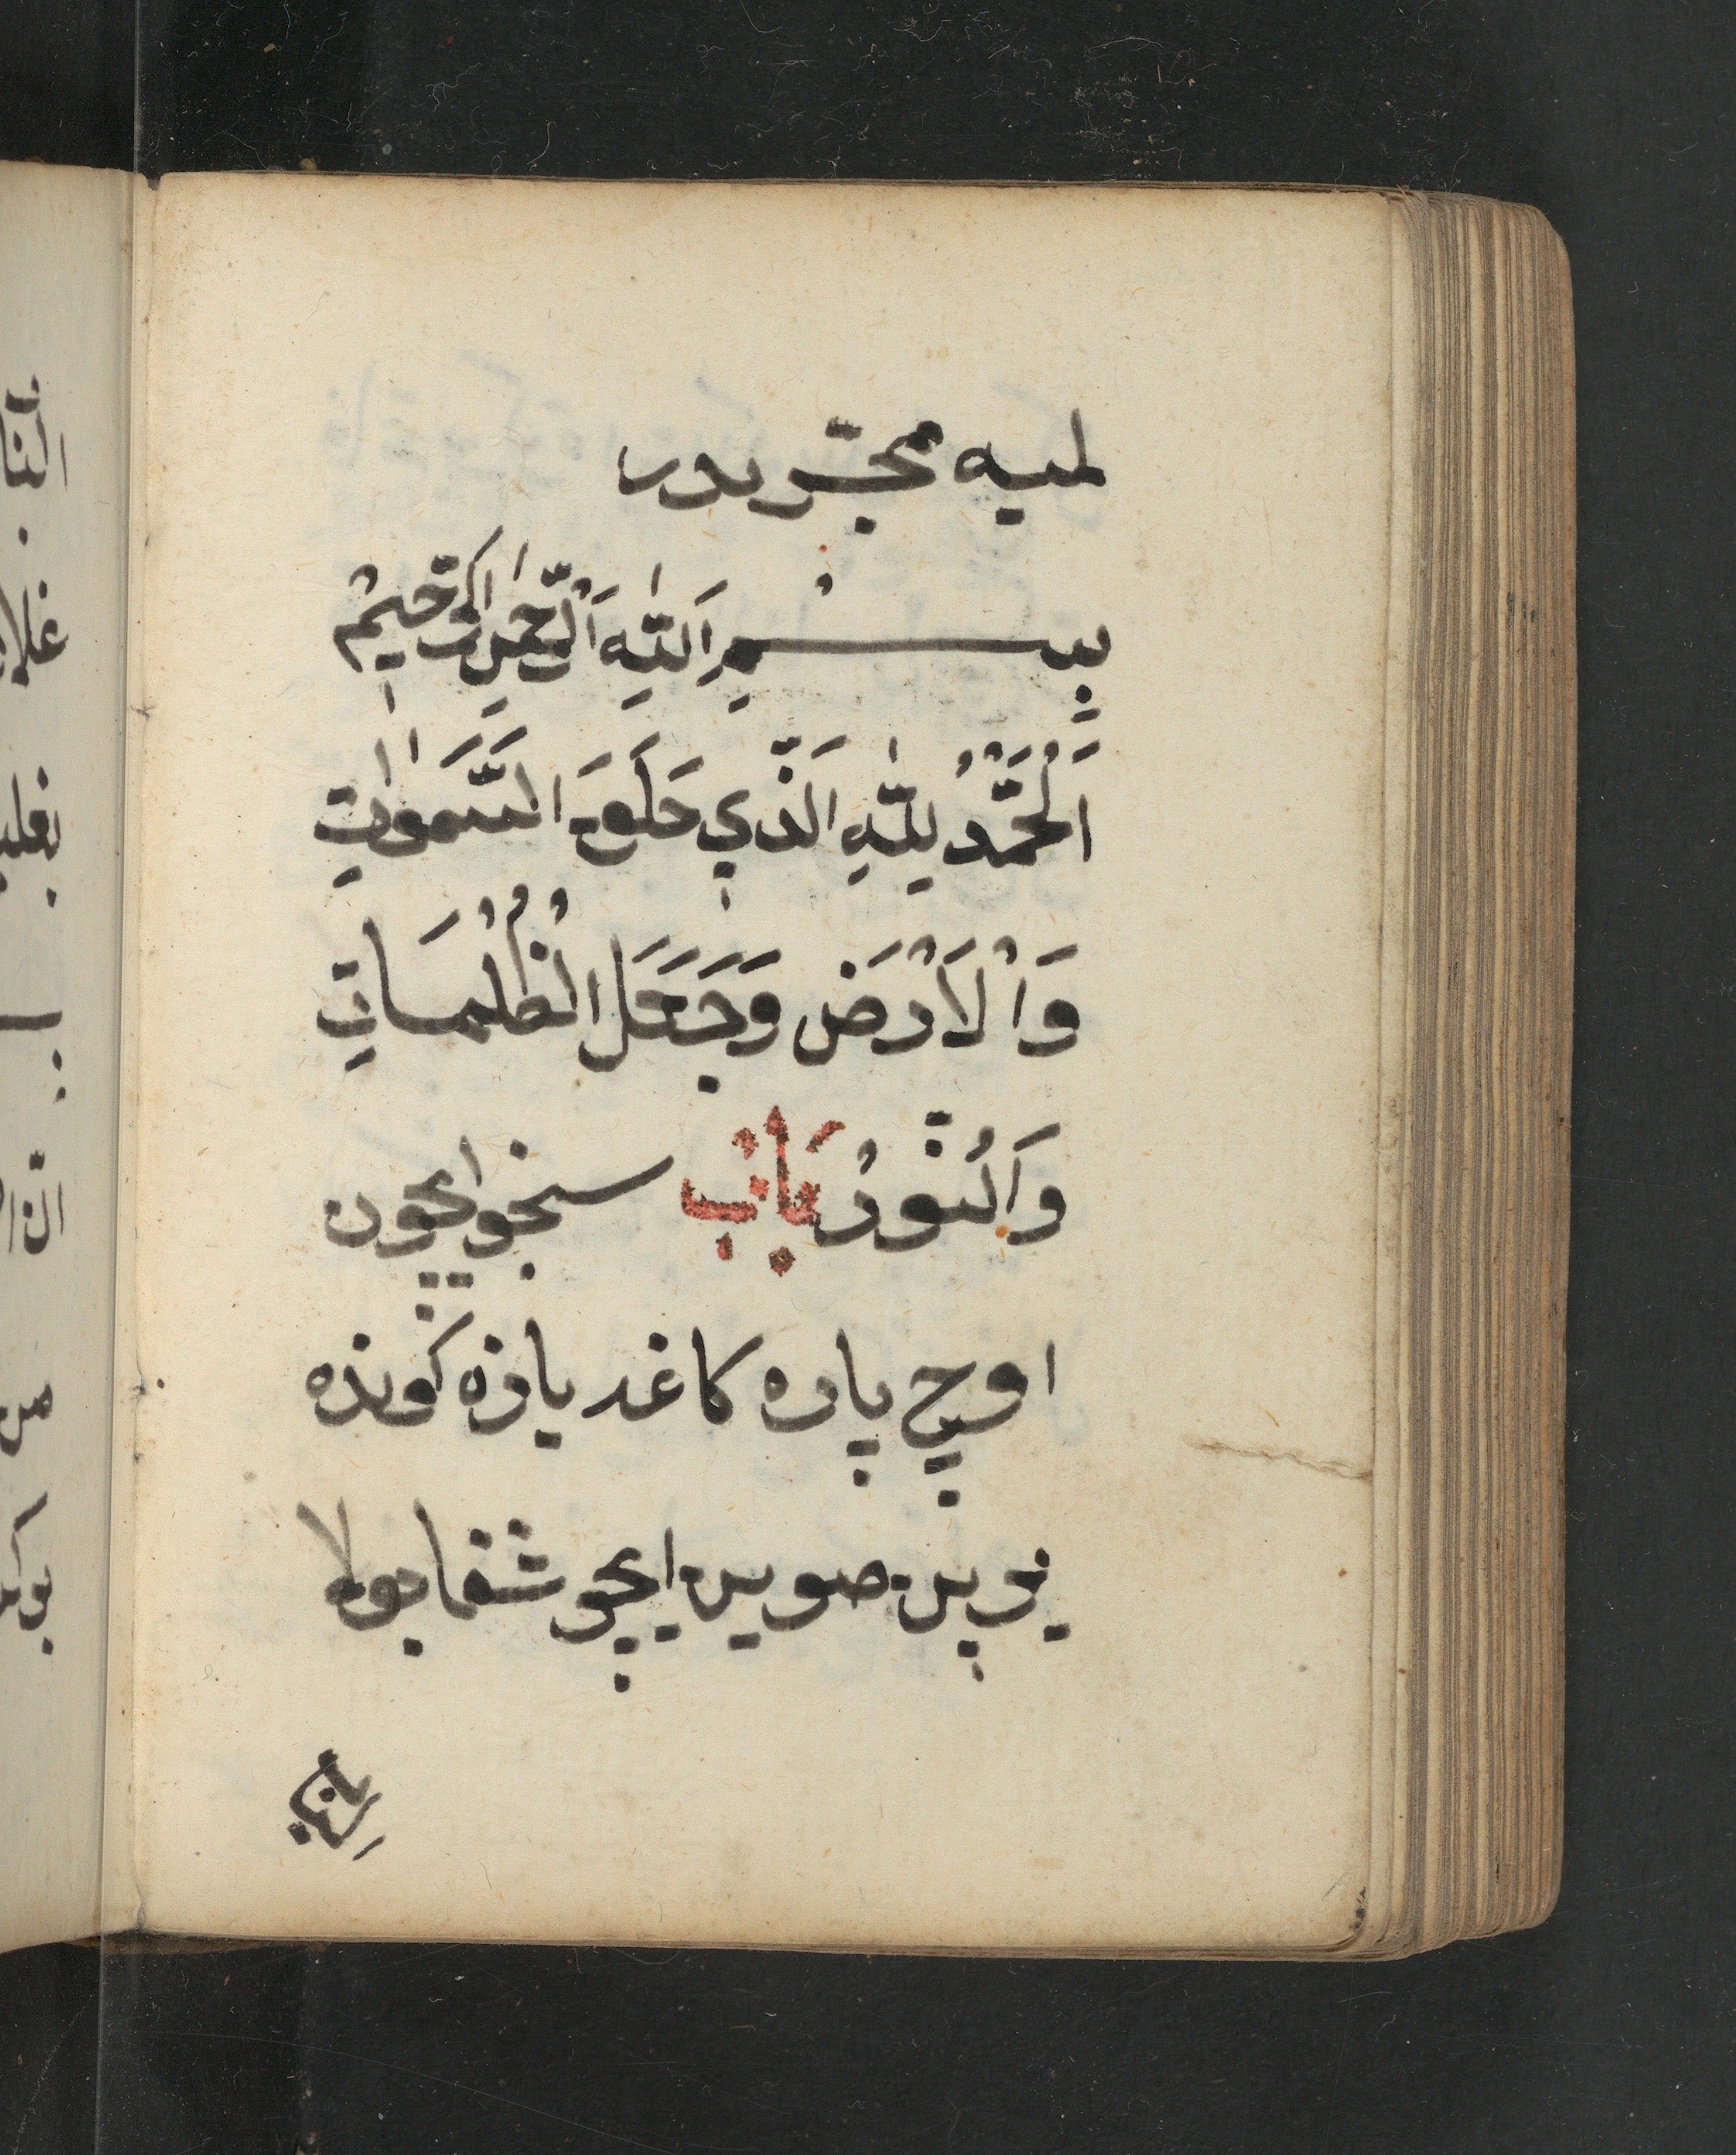 لميه مجربدور
بِسْمِ اَللّٰهِ اَلْرَّحْمٰنِ الرَّحيٖمْ
اَلْحَمْدُ لِلّٰهِ الَذّٖي خَلَقَ السَّمَوٰاتِ
وَاْلاَرْضَ وَجَعَلَ الْظُلُمَاتِ
وَاَلنّوُرُ بَابْ سنجو ايچون
اوچ پاره كاغد يازه كونده
نوبن صوين ايچو شفا بولا
باب